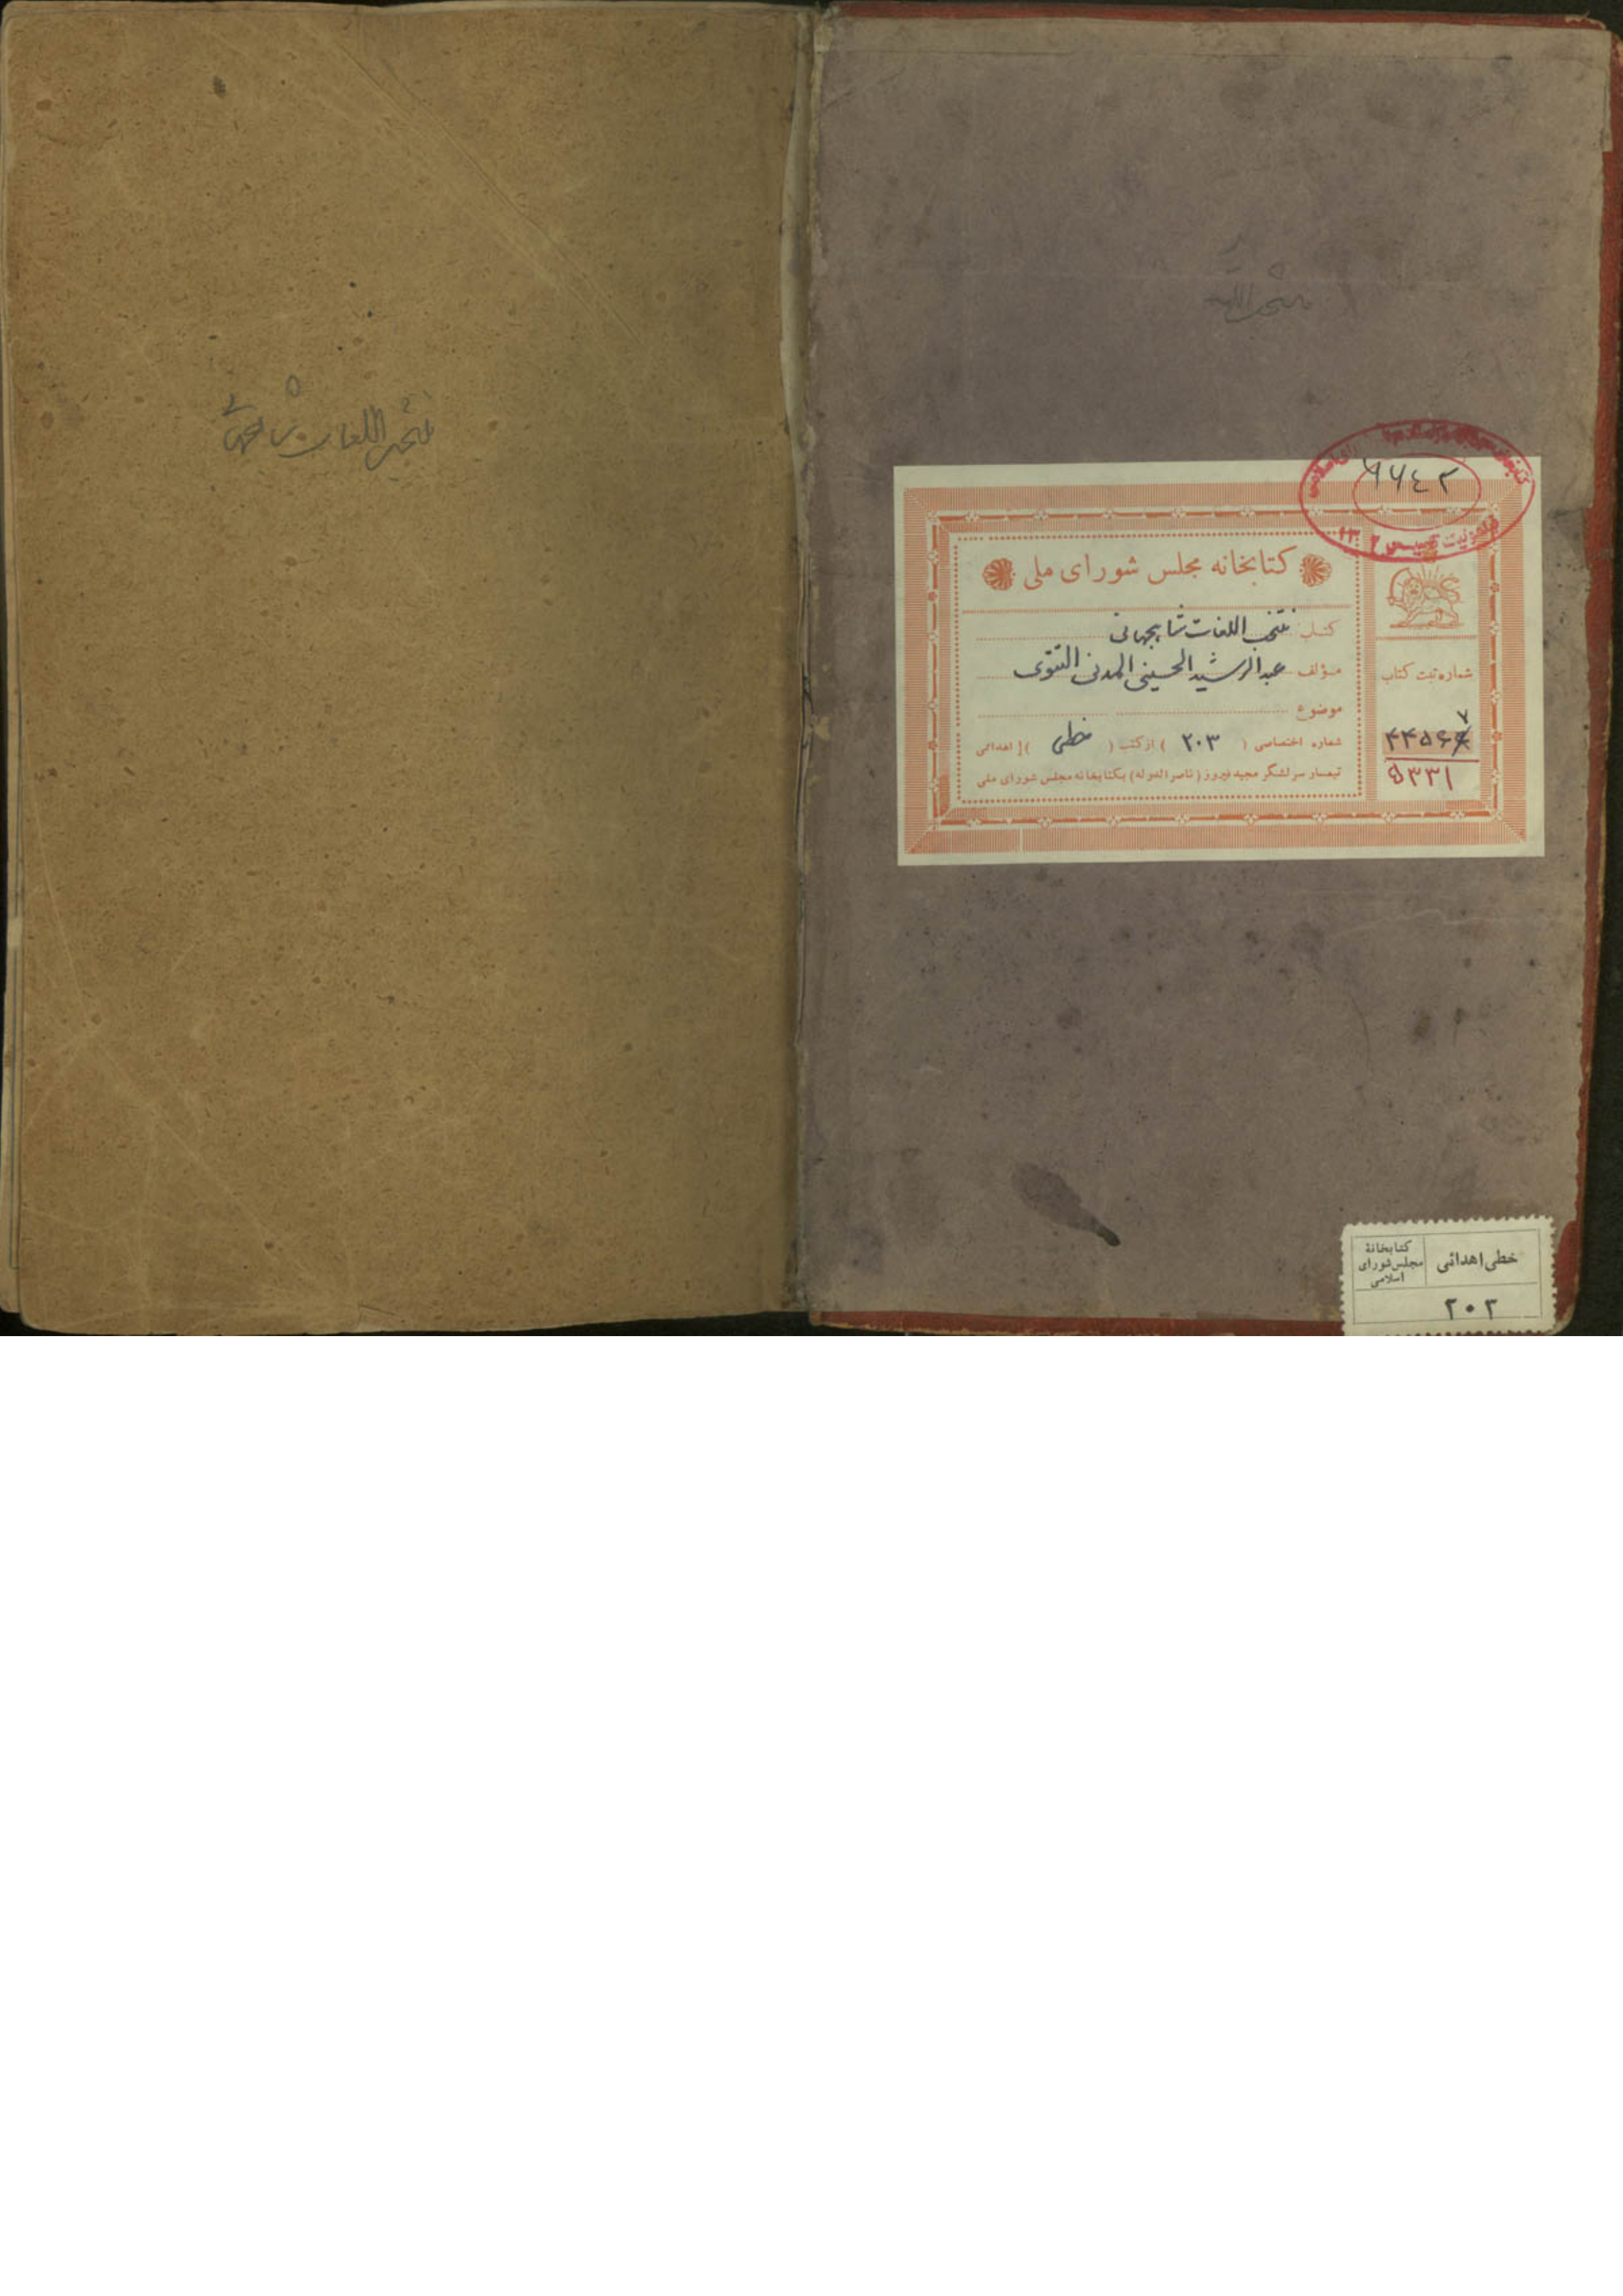 منتخب اللغات
۶۶۴۲
کتابخانه مجلس شورای ملی
کتاب منتخب اللغات شاهجهانی
مؤلف عبدالرشید الحسینی المدنی التتوی
موضوع
شماره اختصاصی ( ۲۰۳ ) از کتب ( خطی ) اهدائی
تیمسار سرلشگر مجید فیروز ( ناصرالدوله ) بکتابخانه مجلس شورای ملی
شماره ثبت کتاب
۷
۴۴۵۶
۵۳۳۱
خطی اهدائی
کتابخانهٔ
مجلس شورای
اسلامی
۲۰۳
منتخب اللغات شاهجهانی